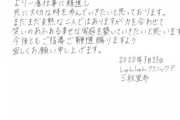 より一層仕事に精進し
共に大切な時を歩んでいきたいと思っております。
まだまだ未熟な二人ではありますが力を合わせて
笑いのあふれる幸せな家庭を築いていきたいと思います
今後ともご指導ご鞭撻賜りますよう
宜しくお願い申し上げます。
2020年3月23日
三秋里歩